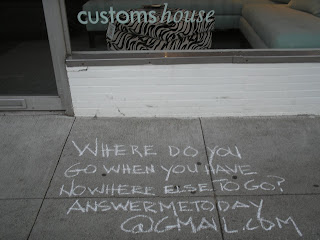 customshouse
WHERE DO YOU
GO WHEN YOU HAVE
NOWHERE ELSE TO GO?
ANSWERMETODAY
@GMAIL.COM